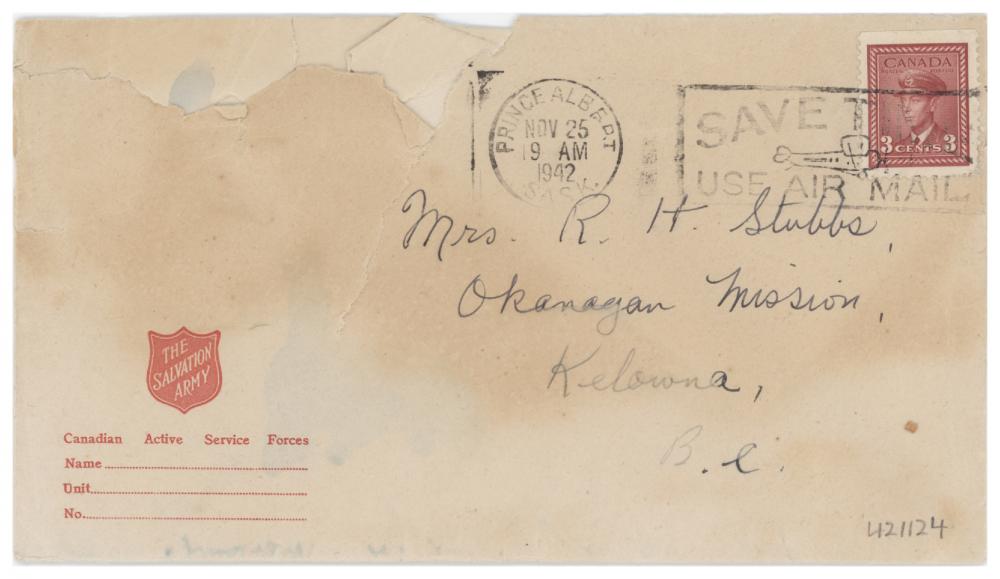 PRINCE ALBERT
NOV 25
19 AM
1942
SASK.
SAVE T
USE AIR MAIL
CANADA
POSTES POSTAGE
3 CENTS 3
Mrs. R. H. Stubbs,
Okanagan Mission,
Kelowna,
B.C.
THE
SALVATION
ARMY
Canadian Active Service Forces
Name
Unit
No.
421124